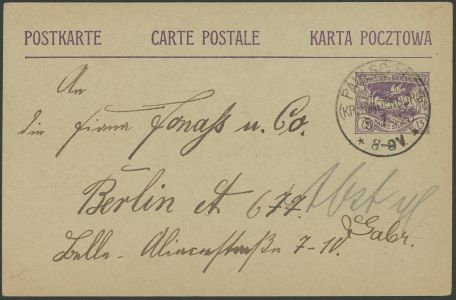 POSTKARTE CARTE POSTALE KARTA POCZTOWA
An
die Firma Jonass u. Co.
Berlin A 677.
Belle-Alliancestraße 7-10.
15 15
* 8-9V. *